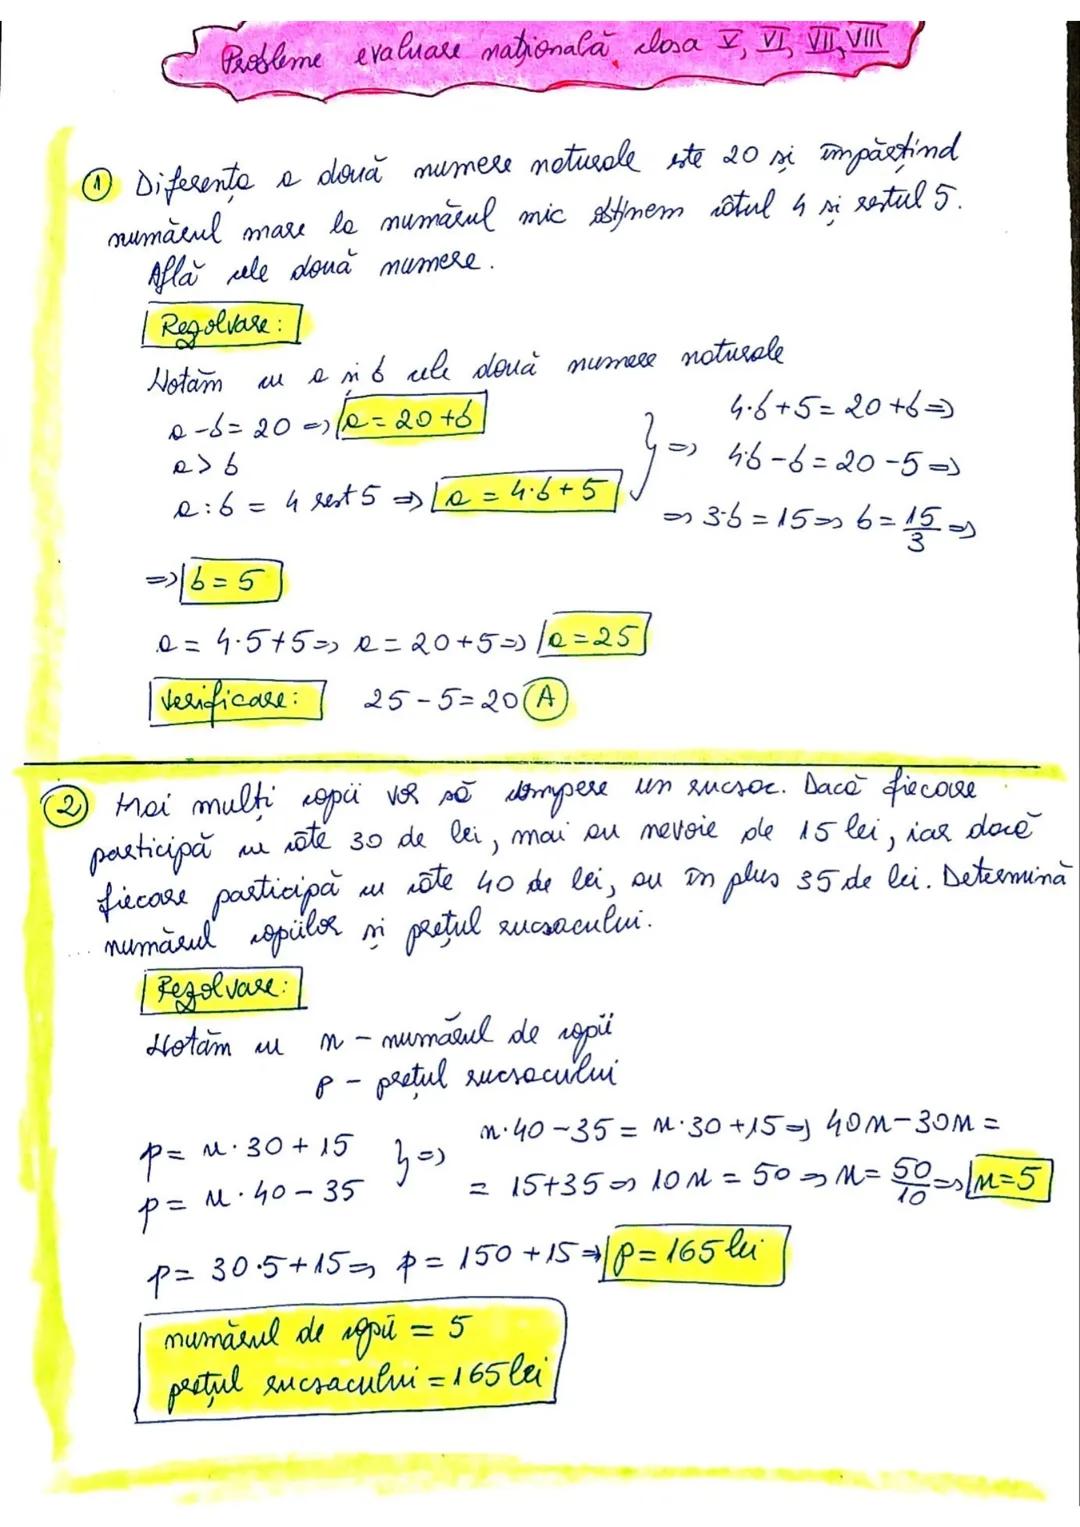 Probleme evaluare națională clasa V, VI, VII, VIII
① Diferența a două numere naturale este 20 și împărțind
numărul mare la numărul mic obținem câtul 4 și restul 5.
Află cele două numere.
Rezolvare:
Notăm cu a și b cele două numere naturale
a-b= 20 => a= 20+b
a > b
a:b = 4 rest 5 => a = 4·b+5
} => 4·b+5= 20+b=>
4b-b= 20-5=>
=> 3·b= 15=> b= 15/3 =>
=> b= 5
a= 4·5+5=> a= 20+5=> a=25
Verificare: 25-5=20 (A)
② Mai mulți copii vor să cumpere un rucsac. Dacă fiecare
participă cu câte 30 de lei, mai au nevoie de 15 lei, iar dacă
fiecare participă cu câte 40 de lei, au în plus 35 de lei. Determină
numărul copiilor și prețul rucsacului.
Rezolvare:
Notăm cu n - numărul de copii
p - prețul rucsacului
p= n·30+15
p= n·40-35
} => n·40-35= n·30+15=> 40n-30n=
= 15+35=> 10n= 50=> n= 50/10 => n=5
p= 30·5+15=> p= 150+15=> p= 165 lei
numărul de copii = 5
prețul rucsacului = 165 lei